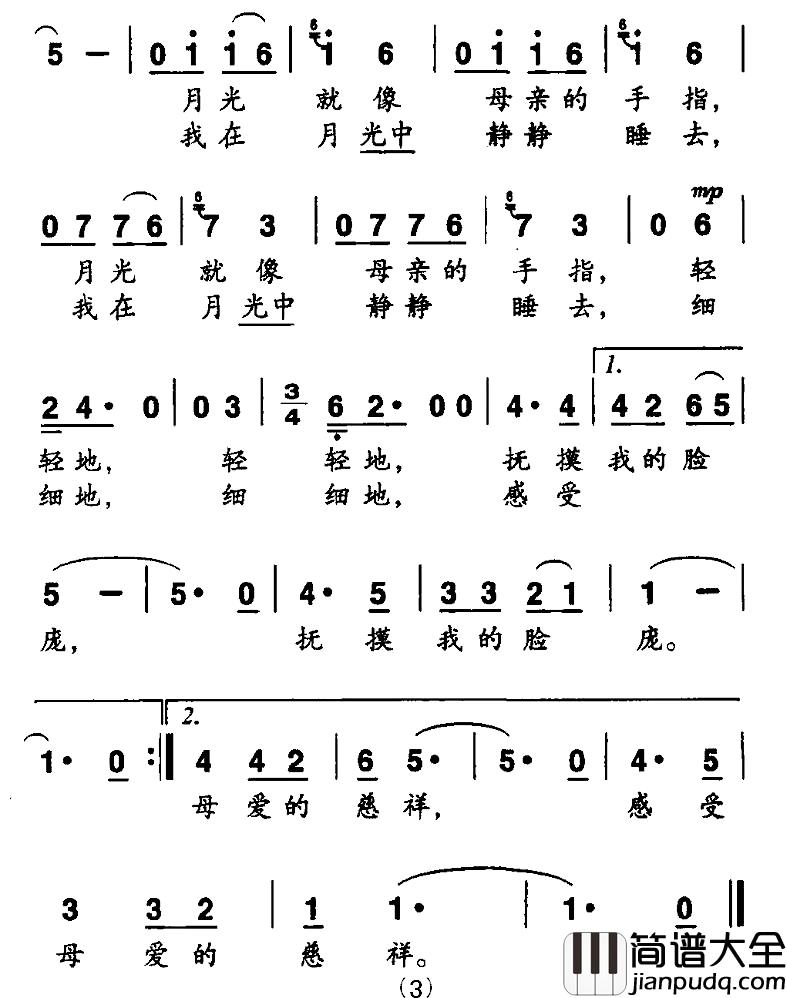 5 — | 0 1 1 6 | 6 1 6 | 0 1 1 6 | 6 1 6 |
月光 就像 母亲的 手指,
我在 月光中 静静 睡去,
mp
0 7 7 6 | 6 7 3 | 0 7 7 6 | 6 7 3 | 0 6 |
月光 就像 母亲的 手指, 轻
我在 月光中 静静 睡去, 细
1.
2 4· 0 | 0 3 | 3/4 6 2· 0 0 | 4· 4 | 4 2 6 5 |
轻地, 轻 轻地, 抚摸我的脸
细地, 细 细地, 感受
5 — | 5· 0 | 4· 5 | 3 3 2 1 | 1 — |
庞, 抚摸我的脸 庞。
2.
1· 0 :| 4 4 2 | 6 5· | 5· 0 | 4· 5 |
母爱的 慈祥, 感受
3 3 2 | 1 1· | 1· 0 ||
母 爱的 慈 祥。
(3)
简谱大全
jianpudq.com